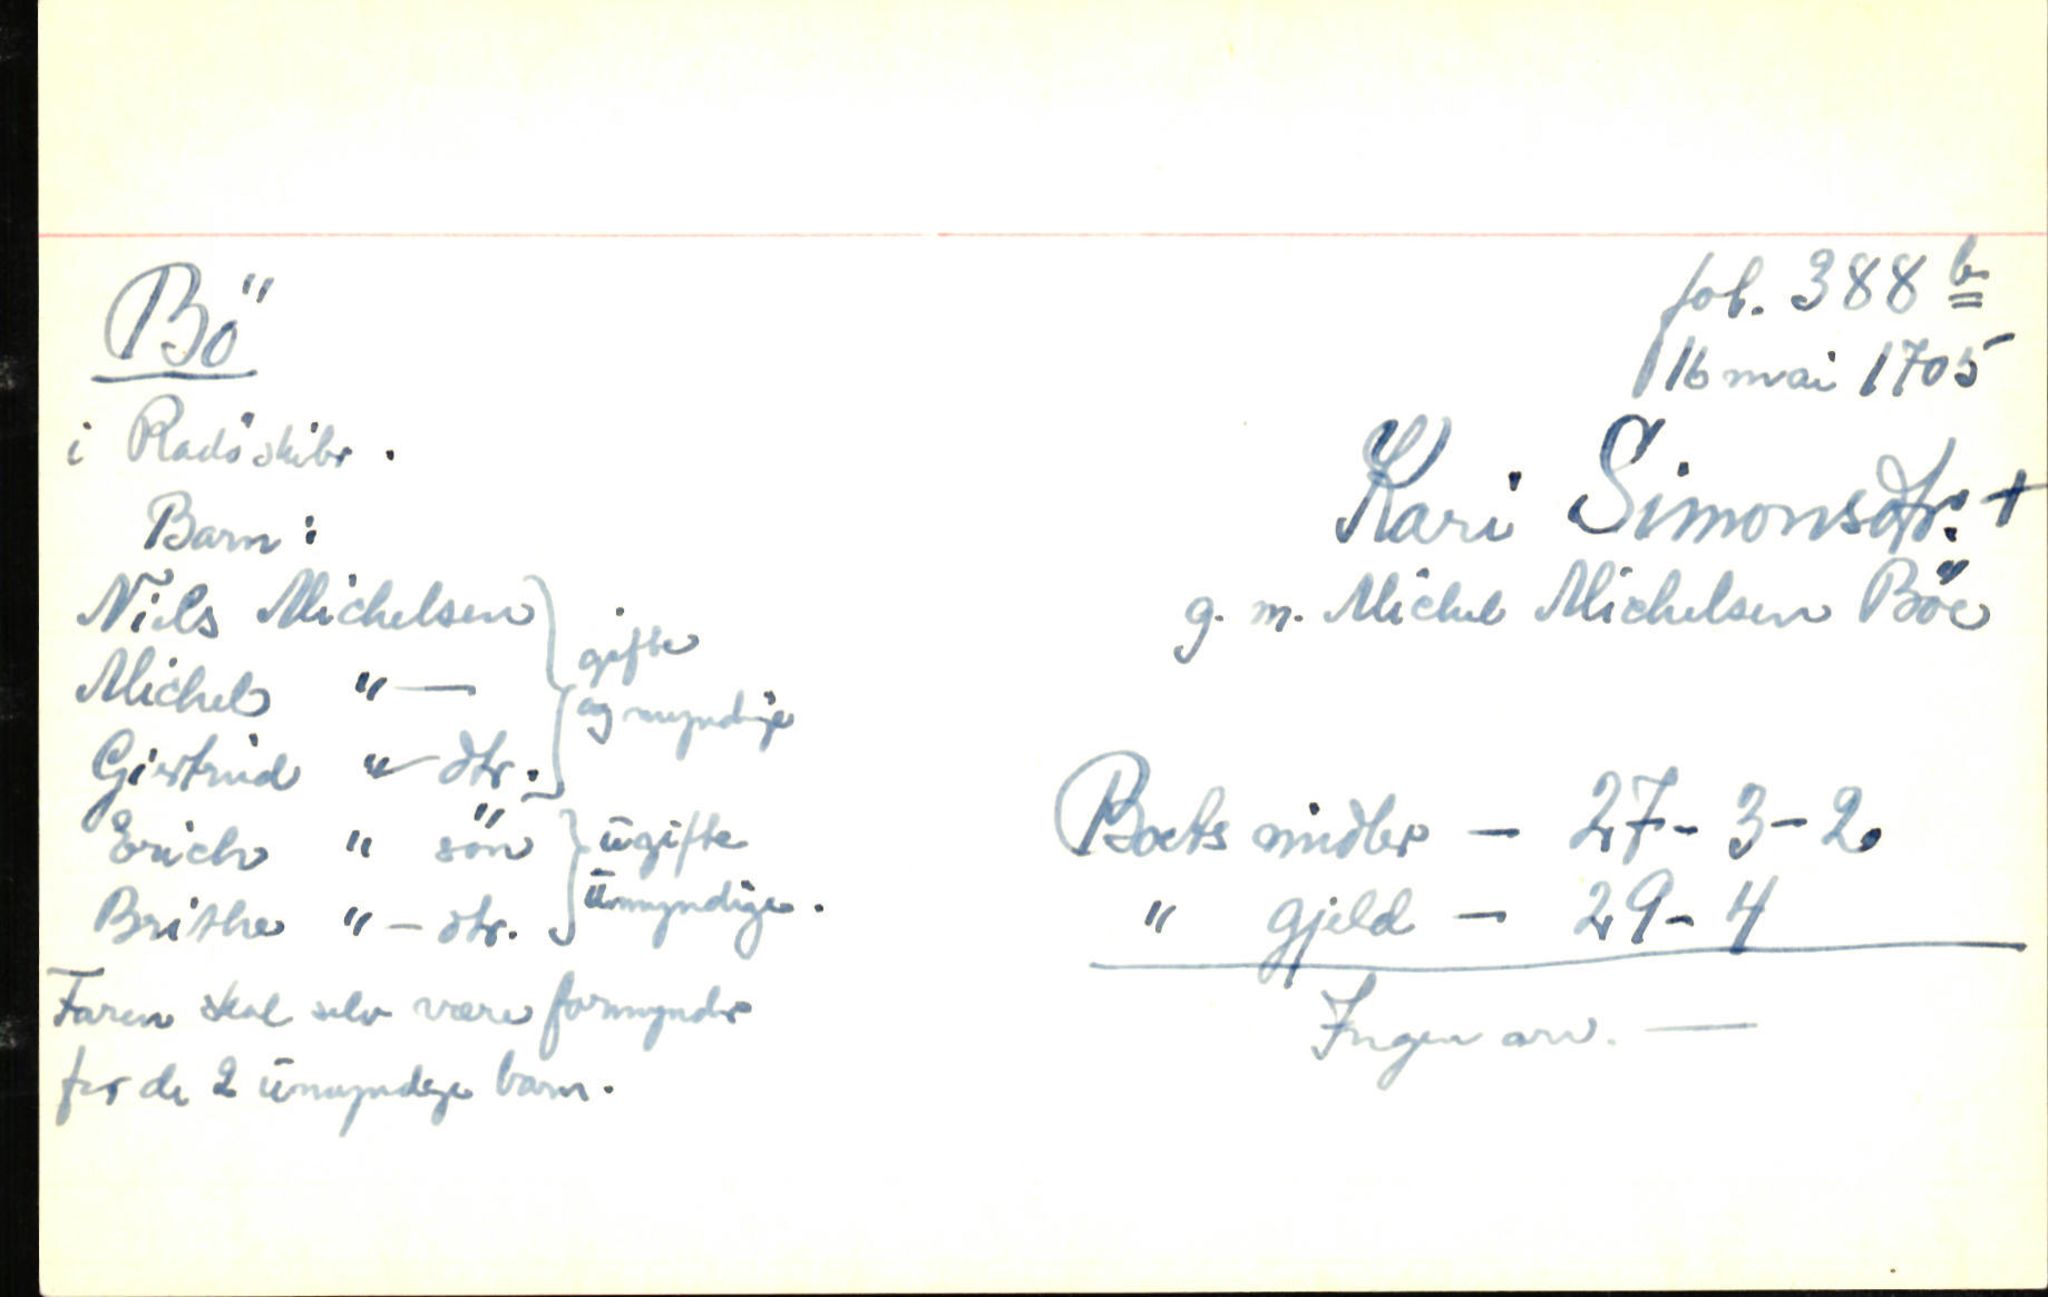 Bö
i Radöskibr.
Barn:
Niels Michelsen
Michel "—
Giertrud "— dtr.
gifte
og myndige
Erich " sön
Brithe "— dtr.
ugifte
umyndige.
Faren skal selv være formynder
for de 2 umyndige barn.
fol. 388 b
16 mai 1705
Kari Simonsdtr. +
g. m. Michel Michelsen Böe
Boets midler — 27-3-2.
" gjeld — 29-4
Ingen arv. —